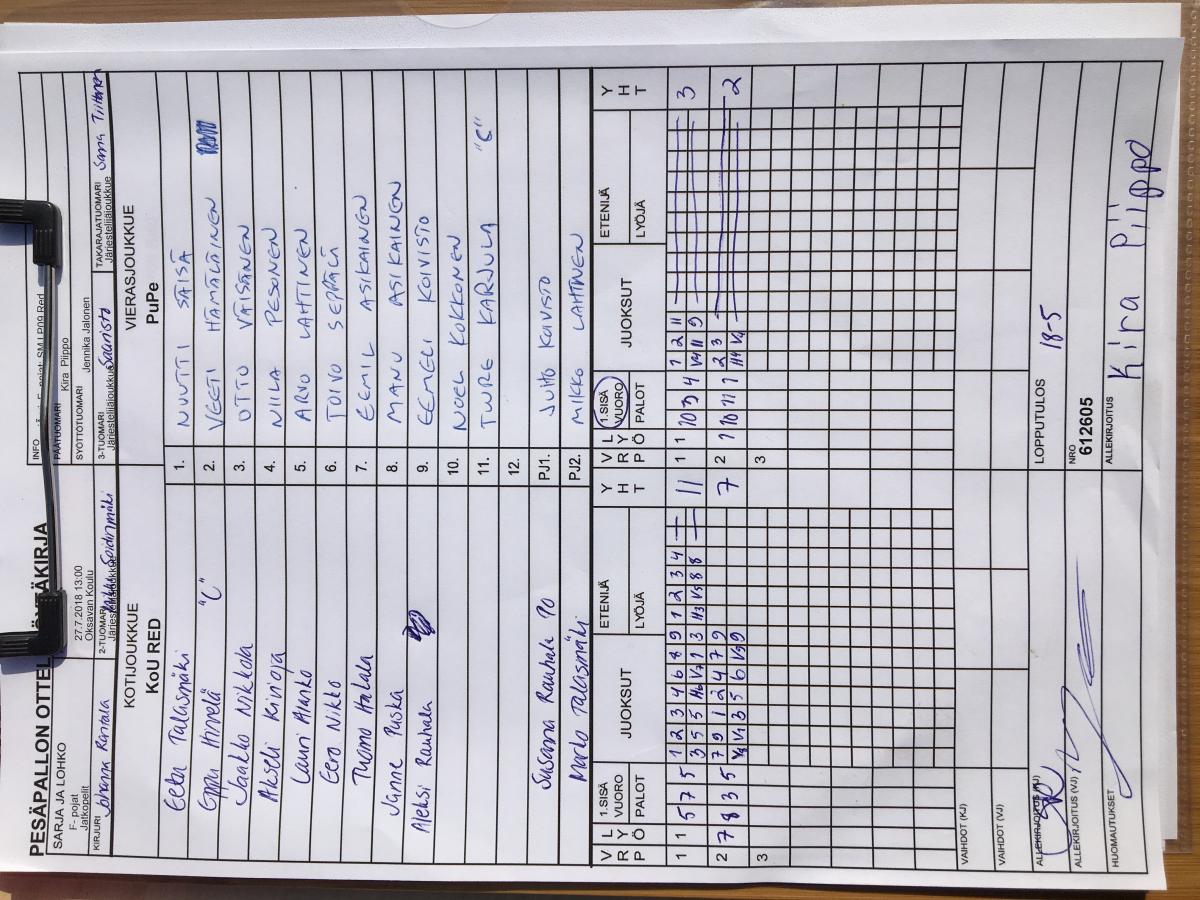 PESÄPALLON OTTEL
SARJA JA LOHKO
F- pojat
Jatkopelit
27.7.2018 13:00
Oksavan Koulu
INFO
PÄÄTUOMARI Kira Piippo
SYÖTTÖTUOMARI Jennika Jalonen
KIRJURI Johanna Rantala
2-TUOMARI
Järjestelijäjoukkue
3-TUOMARI
Järjestelijäjoukkue Saaristo
TAKARAJATUOMARI Sanna Tiittanen
Järjestelijäjoukkue
KOTIJOUKKUE
KoU RED
VIERASJOUKKUE
PuPe
Eelu Talasmäki 1. NUUTTI SÄISÄ
Eppu Hirvelä "C" 2. VEETI HÄMÄLÄINEN
Jaakko Nikkola 3. OTTO VÄISÄNEN
Akseli Kivioja 4. NIILA PESONEN
Lauri Aranko 5. ARVO LAHTINEN
Eero Nikko 6. TOIVO SEPPÄLÄ
Tuomo Hakala 7. EEMIL ASIKAINEN
Janne Paska 8. MANU ASIKAINEN
Aleksi Rauhala 9. EEMELI KOIVISTO
10. NOEL KOKKONEN
11. TURE KARJULA "C"
12.
Susana Rauhala PO PJ1. JUHO KOIVISTO
Marko Talasmäki PJ2. MIKKO LAHTINEN
V R P L Y Ö 1.SISÄ VUORO PALOT JUOKSUT ETENIJÄ LYÖJÄ Y H T V R P L Y Ö 1.SISÄ VUORO PALOT JUOKSUT ETENIJÄ LYÖJÄ Y H T
1 1 5 7 5 1 2 3 4 6 8 9 1 2 3 4 11 1 1 10 3 4 1 2 11 3
3 5 5 H6 V7 1 3 H3 V5 8 8 V4 11 9
2 7 8 3 5 7 9 1 2 4 7 9 7 2 1 10 11 1 2 3 2
V4 V1 3 5 6 V9 9 H4 V4
3 3
VAIHDOT (KJ)
VAIHDOT (VJ)
ALLEKIRJOITUS (KJ)
LOPPUTULOS 18-5
ALLEKIRJOITUS (VJ)
NRO
612605
HUOMAUTUKSET
ALLEKIRJOITUS Kira Piippo